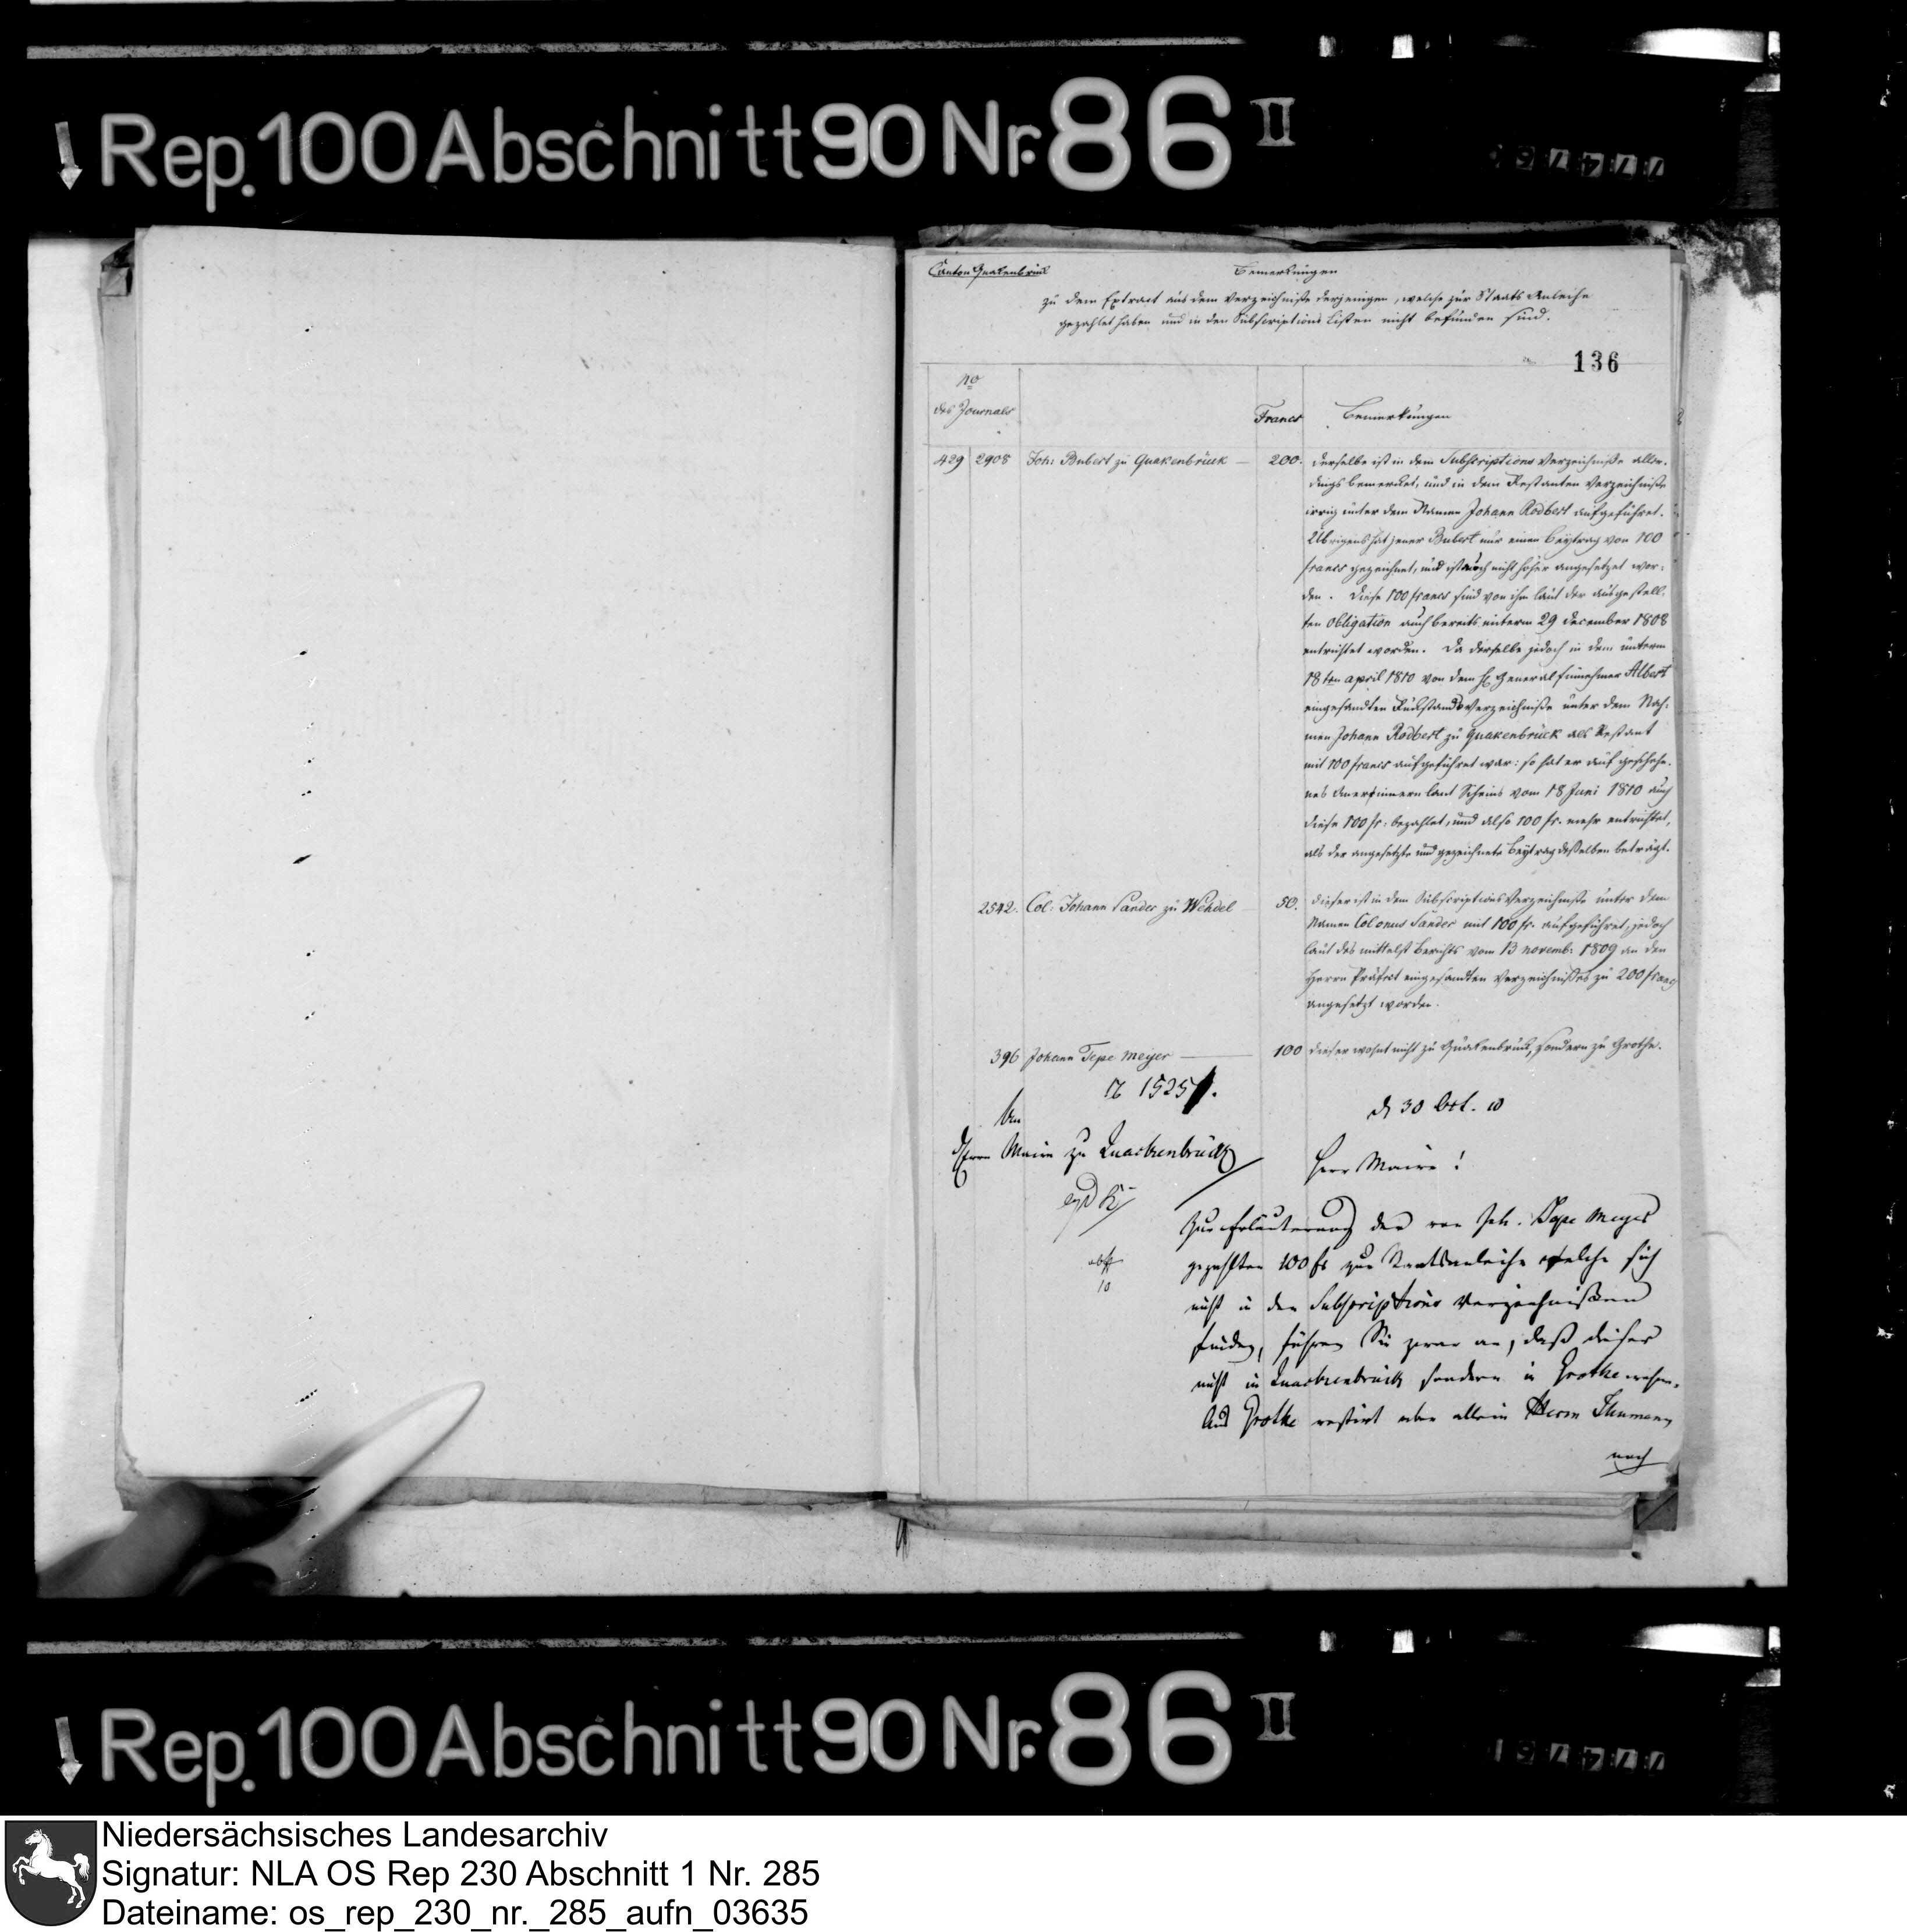 Rep. 100 Abschnitt 90 Nr. 86 II
Canton Quakenbrück
Bemerkungen
zu dem Extract aus dem Verzeichniße derjenigen, welche zur Staats Anleihe
gezahlet haben und in den Subscriptions Listen nicht befunden sind.
136
no
des Journals
Francs
Bemerkungen
429 2908 Joh: Bubert zu Quakenbrück — 200.
derselbe ist in dem Subscriptions Verzeichniße aller-
dings bemerket, und in dem Restanten Verzeichniße
irrig unter dem Namen Johann Rodbert aufgeführet.
Übrigens hat jener Bubert nur einen Beytrag von 100
francs gezeichnet, und ist auch nicht höher angesetzet wor-
den. Diese 100 francs sind von ihm laut der ausgestell-
ten Obligation auch bereits unterm 29 December 1808
entrichtet worden. Da derselbe jedoch in dem unterm
18ten april 1810 von dem H. General Einnehmer Albert
eingesandten Rückstands Verzeichniße unter dem Nah-
men Johann Rodbert zu Quakenbrück als Restant
mit 100 francs aufgeführet war: so hat er auf geschehe-
nes Anerinnern laut Scheins vom 18 Juni 1810 auch
diese 100 fr: bezahlet, und also 100 fr. mehr entrichtet,
als der angesetzte und gezeichnete Beytrag desselben beträgt.
2542. Col: Johann Sander zu Wehdel — 50.
dieser ist in dem Subscriptions Verzeichniße unter dem
Namen Colonus Sander mit 100 fr. aufgeführet, jedoch
laut des mittelst Berichts vom 13 novemb: 1809 an den
Herrn Präfect eingesandten Verzeichnißes zu 200 francs
angesetzt worden.
396 Johann Tepe meyer — 100
dieser wohnt nicht zu Quakenbrück, sondern zu Grothe.
1525
d 30 Oct. 10
An
Herrn Maire zu Quackenbrück
Herr Maire!
Zur Erläuterung der von Joh. Tepe Meyer
gezahlten 100 fr zur Staatsanleihe welche sich
nicht in den Subscriptions Verzeichnißen
finden, führen Sie zwar an, daß dieser
nicht in Quackenbrück sondern in Grothe wohne.
Aus Grothe restirt aber allein Herm Thumann
noch
Rep. 100 Abschnitt 90 Nr. 86 II
Niedersächsisches Landesarchiv
Signatur: NLA OS Rep 230 Abschnitt 1 Nr. 285
Dateiname: os_rep_230_nr._285_aufn_03635